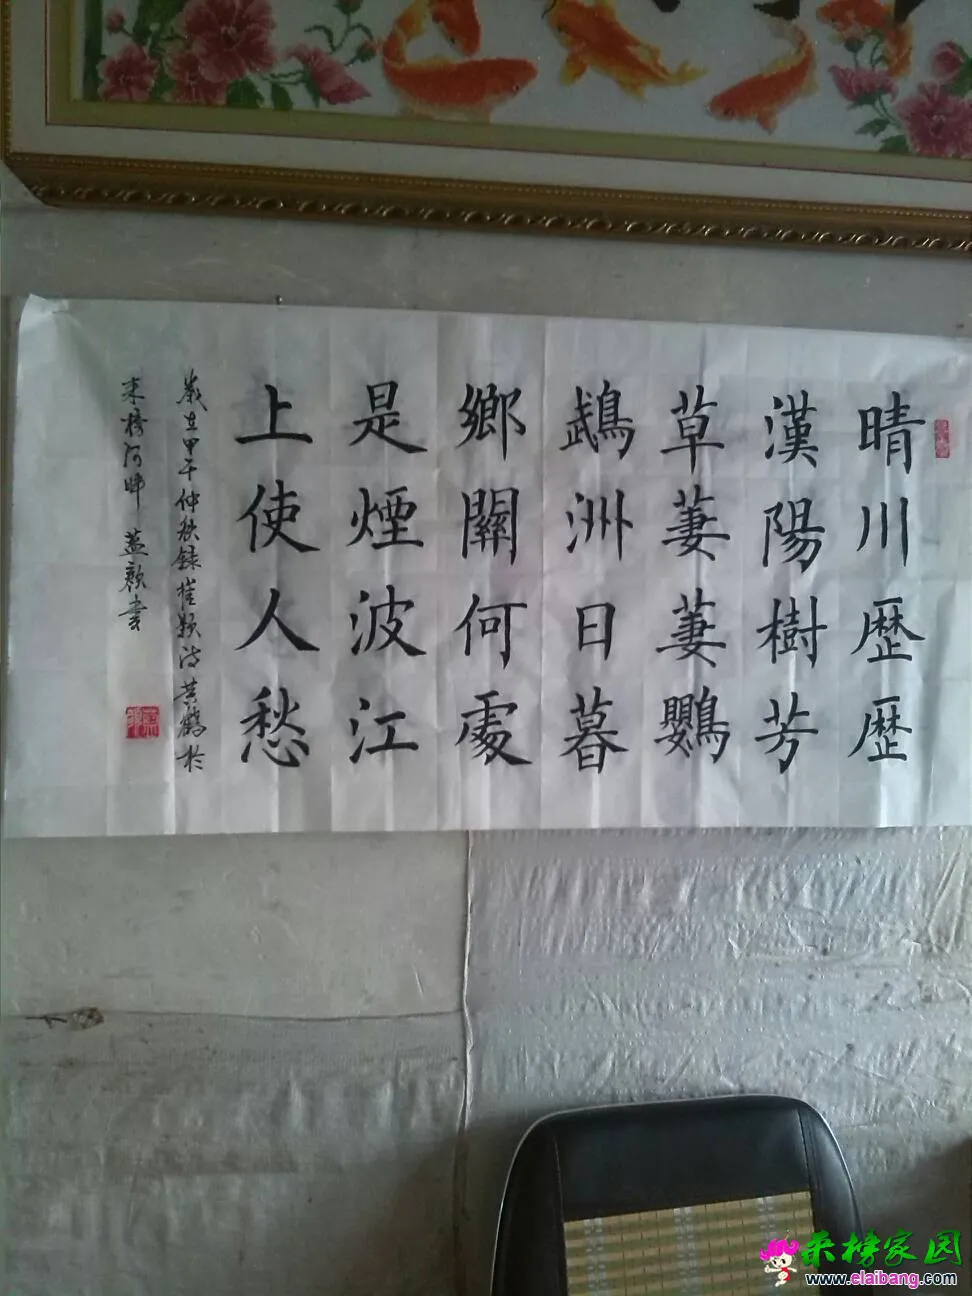 晴川歷歷
漢陽樹芳
草萋萋鸚
鵡洲日暮
鄉關何處
是煙波江
上使人愁
歲在甲午仲秋録崔顥诗黄鶴於
来榜河畔 書
来榜家园
www.elaibang.com